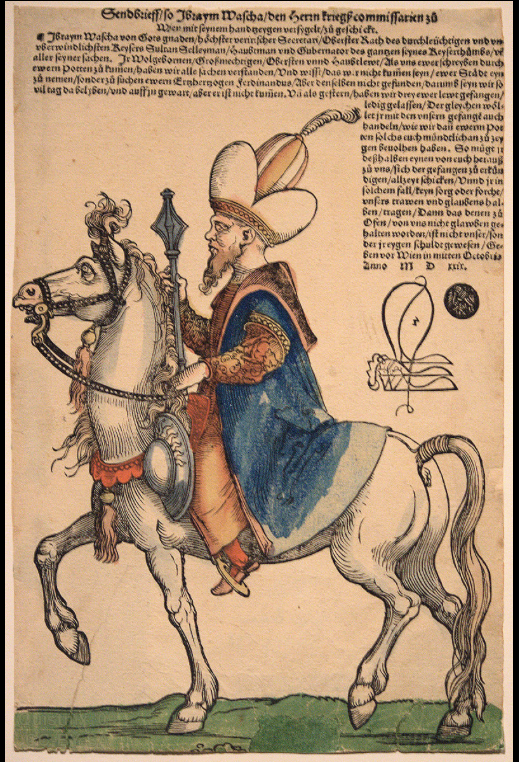 Sendbrieff/so Ibraym Wascha/den Herrn kriegßcommissarien zů
Wien mit seynem handtzeygen versygelt/zů geschickt.
¶ Ibraym Wascha von Gots gnaden/höchster verirscher Secretari/Obrister Rath des durchleüchtigen vnd vn⸗
vberwindlichsten Keysers Sultan Selleyman/Haubtman vnd Gubernator des gantzen seynes Keyserthůmbs/
aller seyner sachen. Ir Wolgebornen/Großmechtigen/Obersten vnnd Haubtlewt/Als vns ewer schreyben durch
ewern Potten zů kumen/haben wir alle sachen verstanden/Vnd wist/das wir nicht kumen seyn/ewer Stadt eyn
zů nemen/sonder zů sůchen ewern Ertzhertzogen Ferdinandus/Aber denselben nicht gefunden/darumb seyn wir so
vil tag da beliben/vnd auff jn gewart/aber er ist nicht kumen. Vñ als gestern/haben wir drey ewer lewt gefangen/
ledig gelassen/Der gleychen wöl⸗
let jr mit den vnsern gefangē auch
handeln/wie wir dan ewerm Pot
ten solchs euch mündtlichan zů zey
gen beuolhen haben. So müge jr
deßhalben eynen von euch herauß
zů vns/sich der gefangen zů erkün
digen/allzeyt schicken/Vnnd jr in
solchem fall/keyn sorg oder forcht/
vnsers trawen vnd glaubens hal⸗
ben/tragen/Dann das denen zů
Ofen/von vns nicht glawben ge⸗
halten worden/ist nicht vnser/son
der jr eygen schulde gewesen/Ge⸗
ben vor Wien in mitten Octobris
Anno M D xxix.